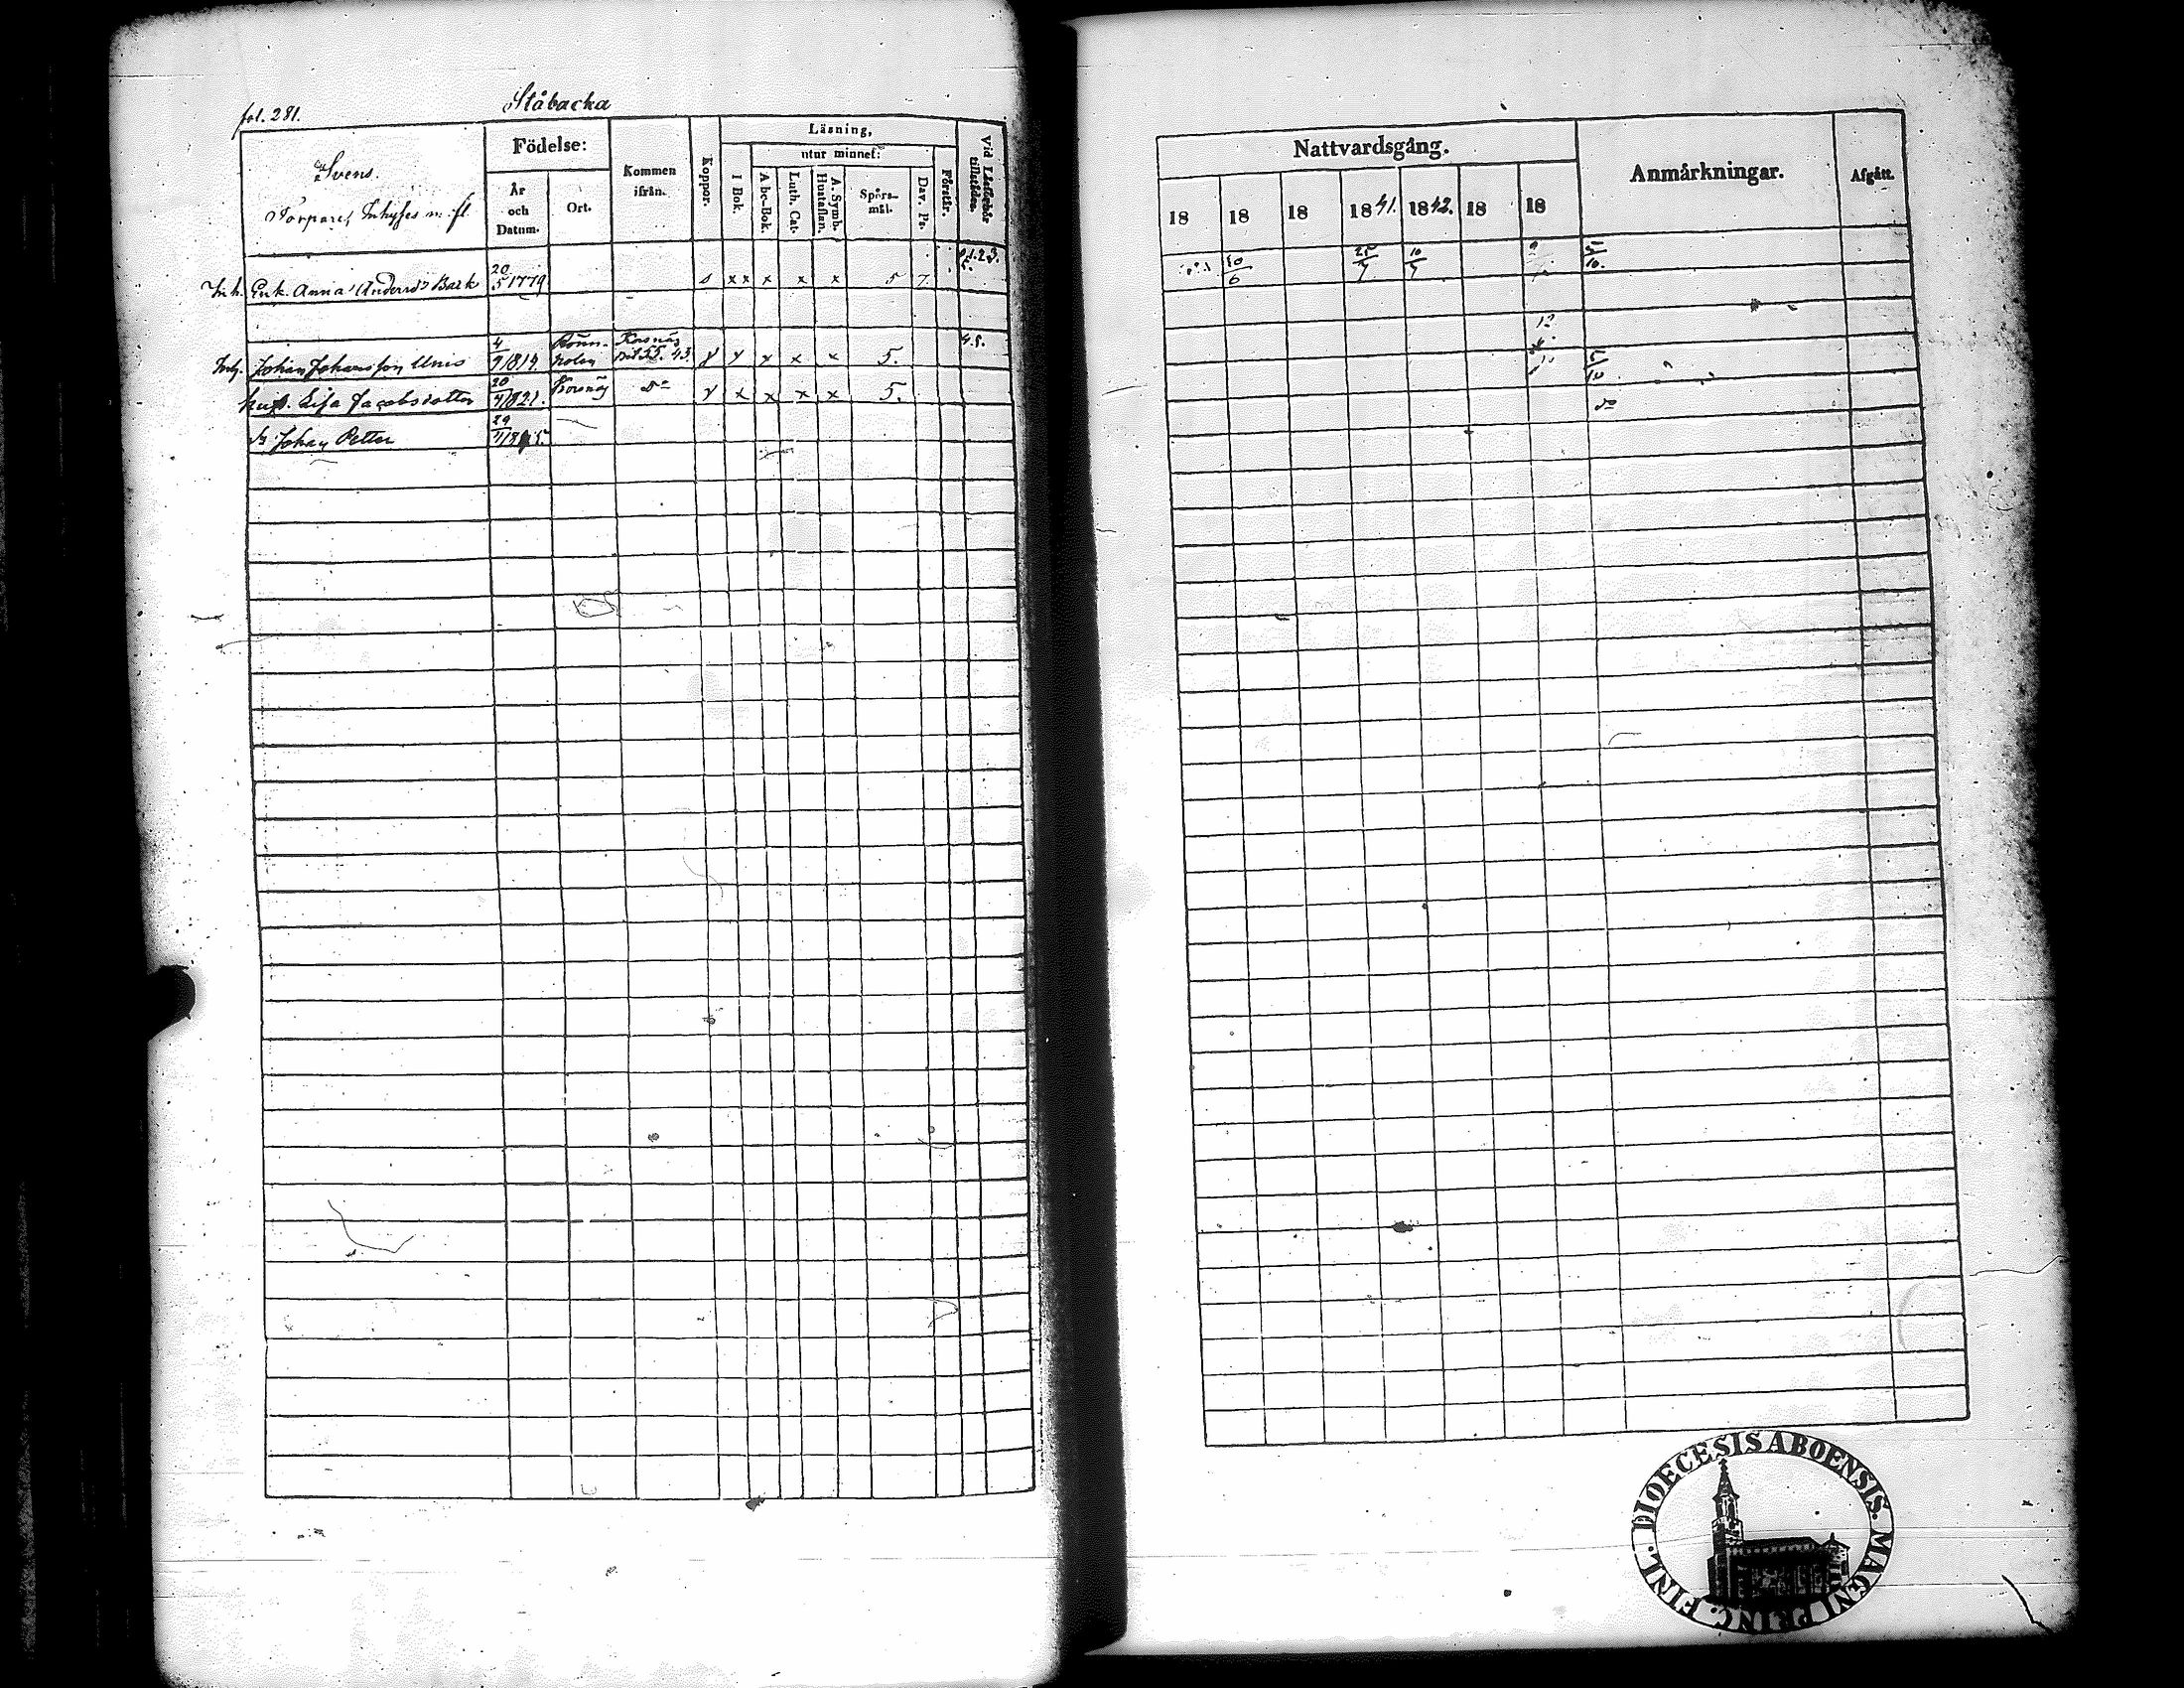 fol. 281.
Ståbacka
Svens.
Torpare, Inhyses m. fl.
Födelse:
År och Datum.
Ort.
Kommen ifrån.
Koppor.
Läsning,
utur minnet:
I Bok.
A bc-Bok.
Luth. Cat.
A. Symb. Hustaflan.
Spörs-mål.
Dav. Ps.
Förstår.
Vid Läseförhör tillstädes.
Inh. Enk. Anna Andersd:r Back 20/5 1779 s x x x x x 5 7.
Johan Johansson Unis 4/9 1819. Korsnäs 43. 5. 4.5.
hust. Lisa Jacobsdotter 20/4 1821. Korsnäs do x x x x 5.
S. Johan Petter 29
Nattvardsgång.
18 18 18 1841. 1842. 18 18
Anmårkningar.
Afgått.
10/6 25/7 10/7 5/10.
12
5/10
do
DIOECESIS ABOENSIS. MAGNI PRINC. FINL.